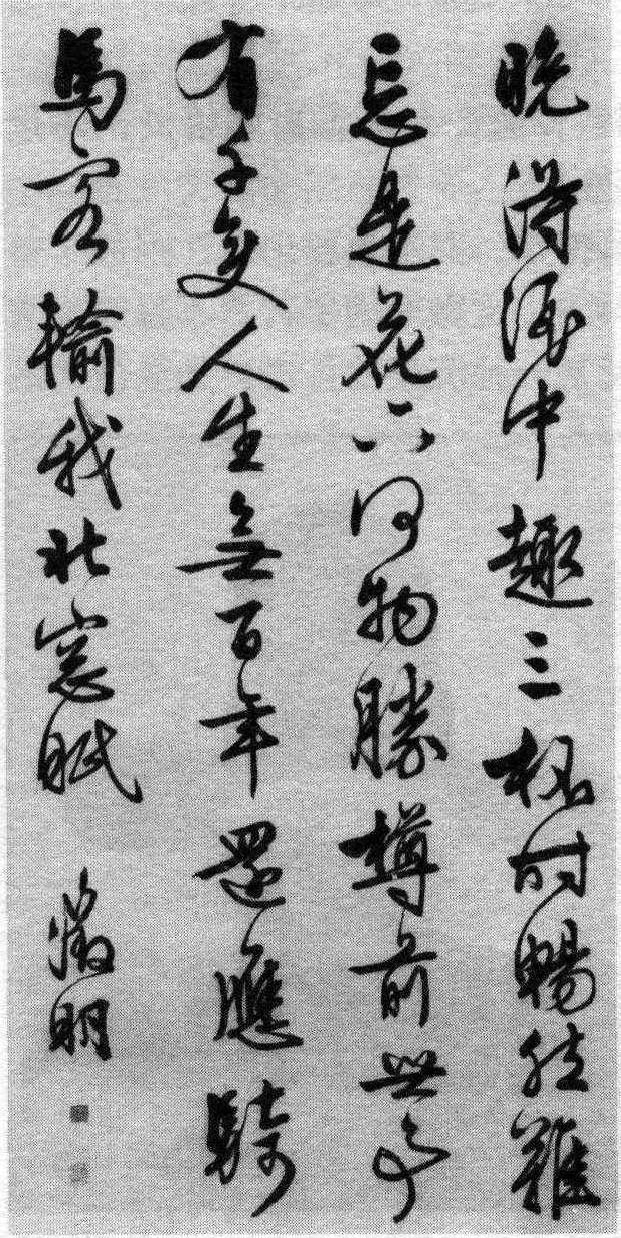 晚得酒中趣三杯时暢然難
忘是花下何物勝樽前世事
有千变人生無百年還應騎
馬客輸我北窓眠
徵明